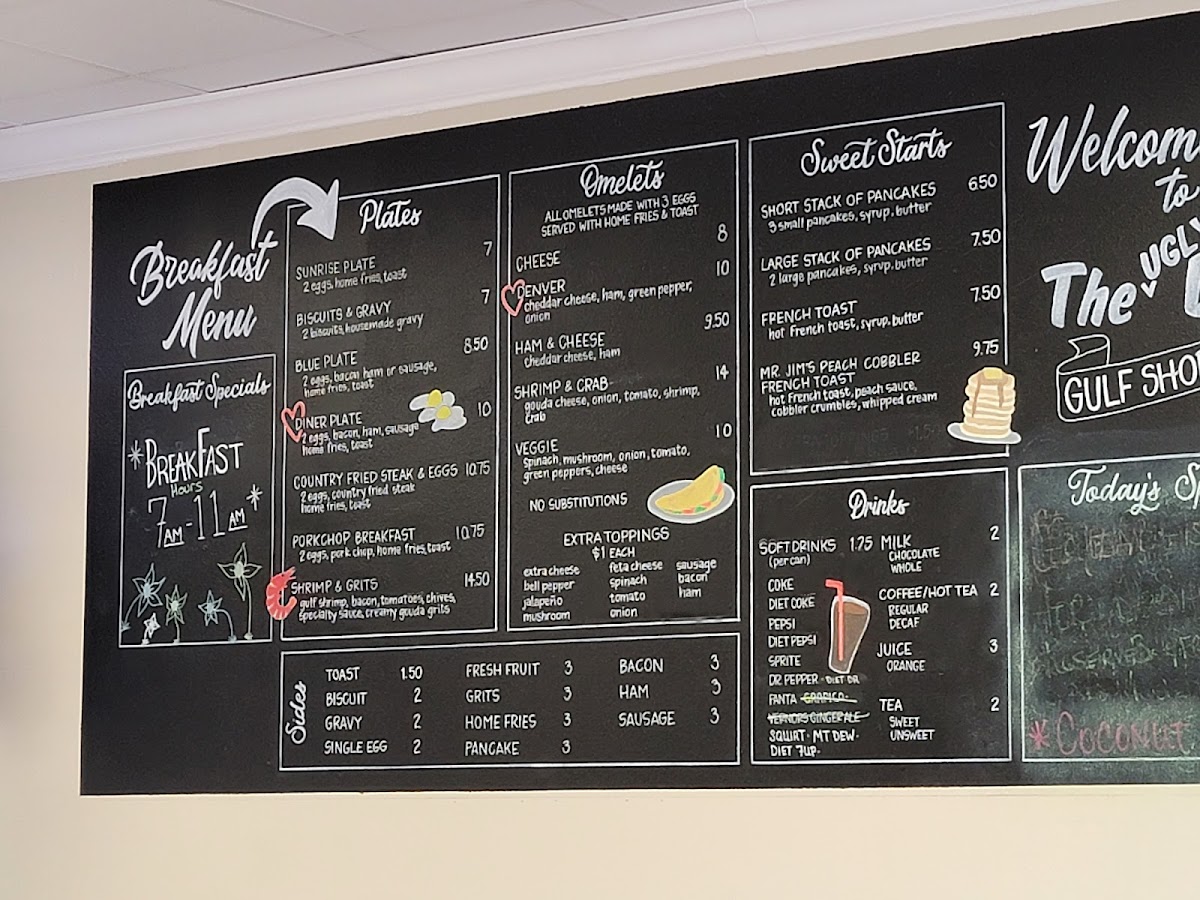 Breakfast
Menu
Breakfast Specials
*BREAKFAST
HOURS
7AM-11AM*
Plates
SUNRISE PLATE 7
2 eggs, home fries, toast
BISCUITS & GRAVY 7
2 biscuits, housemade gravy
BLUE PLATE 8.50
2 eggs, bacon ham or sausage,
home fries, toast
DINER PLATE 10
2 eggs, bacon, ham, sausage
home fries, toast
COUNTRY FRIED STEAK & EGGS 10.75
2 eggs, country fried steak
home fries, toast
PORKCHOP BREAKFAST 10.75
2 eggs, pork chop, home fries, toast
SHRIMP & GRITS 14.50
gulf shrimp, bacon, tomatoes, chives,
specialty sauce, creamy gouda grits
Omelets
ALL OMELETS MADE WITH 3 EGGS
SERVED WITH HOME FRIES & TOAST
CHEESE 8
DENVER 10
cheddar cheese, ham, green pepper,
onion
HAM & CHEESE 9.50
cheddar cheese, ham
SHRIMP & CRAB 14
gouda cheese, onion, tomato, shrimp,
crab
VEGGIE 10
spinach, mushroom, onion, tomato,
green peppers, cheese
NO SUBSTITUTIONS
EXTRA TOPPINGS
$1 EACH
extra cheese feta cheese sausage
bell pepper spinach bacon
jalapeño tomato ham
mushroom onion
Sweet Starts
SHORT STACK OF PANCAKES 6.50
3 small pancakes, syrup, butter
LARGE STACK OF PANCAKES 7.50
2 large pancakes, syrup, butter
FRENCH TOAST 7.50
hot french toast, syrup, butter
MR. JIM'S PEACH COBBLER 9.75
FRENCH TOAST
hot french toast, peach sauce,
cobbler crumbles, whipped cream
Sides
TOAST 1.50 FRESH FRUIT 3 BACON 3
BISCUIT 2 GRITS 3 HAM 3
GRAVY 2 HOME FRIES 3 SAUSAGE 3
SINGLE EGG 2 PANCAKE 3
Drinks
SOFT DRINKS 1.75
(per can)
COKE
DIET COKE
PEPSI
DIET PEPSI
SPRITE
DR PEPPER · DIET DR
FANTA GRAPICO·
VERNORS GINGER ALE
SQUIRT · MT DEW·
DIET 7UP·
MILK 2
CHOCOLATE
WHOLE
COFFEE/HOT TEA 2
REGULAR
DECAF
JUICE 3
ORANGE
TEA 2
SWEET
UNSWEET
to
The UGLY
Today's
*COCONUT